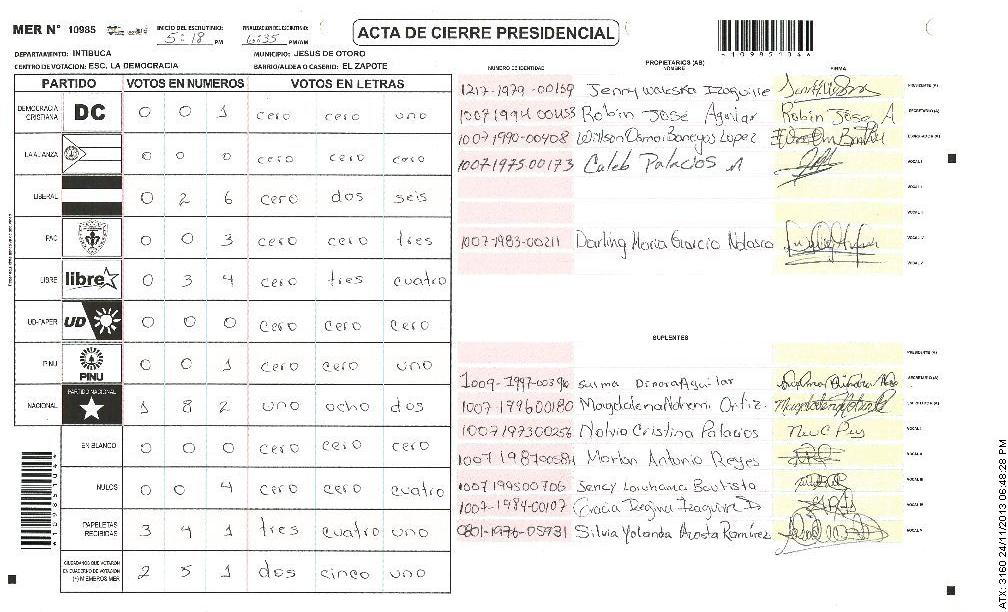 MER N° 10985
INICIO DEL ESCRUTINIO: 5:18 PM
FINALIZACIÓN DEL ESCRUTINIO: 6:35 PM/AM
ACTA DE CIERRE PRESIDENCIAL
DEPARTAMENTO: INTIBUCA
MUNICIPIO: JESUS DE OTORO
CENTRO DE VOTACION: ESC. LA DEMOCRACIA
BARRIO/ALDEA O CASERIO: EL ZAPOTE
PARTIDO VOTOS EN NUMEROS VOTOS EN LETRAS
DEMOCRACIA CRISTIANA DC 0 0 1 cero cero uno
LA ALIANZA 0 0 0 cero cero cero
LIBERAL 0 2 6 cero dos seis
PAC 0 0 3 cero cero tres
LIBRE libre 0 3 4 cero tres cuatro
UD-FAPER UD 0 0 0 cero cero cero
PINU PINU 0 0 1 cero cero uno
NACIONAL PARTIDO NACIONAL 1 8 2 uno ocho dos
EN BLANCO 0 0 0 cero cero cero
NULOS 0 0 4 cero cero cuatro
PAPELETAS RECIBIDAS 3 4 1 tres cuatro uno
CIUDADANOS QUE VOTARON EN CUADERNO DE VOTACION (+) MIEMBROS MER 2 5 1 dos cinco uno
NUMERO DE IDENTIDAD PROPIETARIOS (AS) NOMBRE FIRMA
1217-1979-00159 Jenny Waleska Izaguirre
1007 1994 00453 Robin Jose Aguilar Robin Jose A
1007 1990-00908 Wilson Osmar Banegas Lopez
1007 1975 00173 Caleb Palacios
1007-1983-00211 Darling Maria Garcia Nolasco
SUPLENTES
1009-1997-00396 Selma Dinora Aguilar
1007 1996 00180 Magdalena Nohemi Ortiz.
1007 1973 00256 Nolvia Cristina Palacios
1007 1987 00584 Marlon Antonio Reyes
1007 1995 00706 Sency Bautista
1007-1984-00107 Gracia Izaguirre
0801-1976-05931 Silvia Yolanda Acosta Ramírez
*10985104*
ATX: 3160 24/11/2013 06:48:28 PM